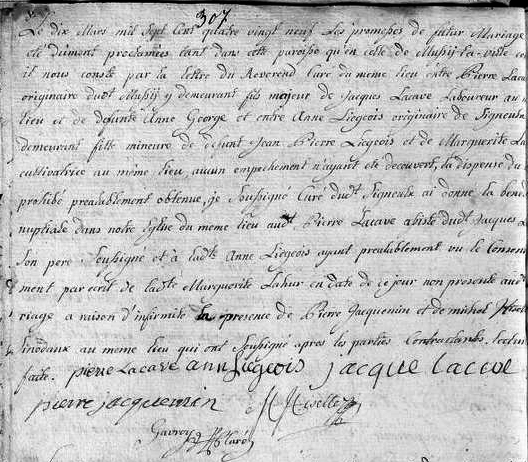 307
Le dix Mars mil Sept Cent quatre vingt neuf Les promesses de futur Mariage
ete duement proclamées tant dans cette paroisse qu'en celle de Mussy-la-ville co
il nous conste par la lettre du Reverend Curé du meme lieu entre Pierre Laca
originaire dudt Mussy y demeurant fils majeur de Jacques Lacave Laboureur au
lieu et de defunte Anne George et entre Anne Liegeois originaire de Signeulx
demeurant fille mineure de defunt Jean Pierre Liegeois et de Marguerite La
cultivatrice au même lieu, aucun empechement n'ayant eté decouvert, la dispense du
prohibé prealablement obtenue, je Soussigné Curé dudt Signeulx ai donné la bene
nuptiale dans notre Eglise du meme lieu audt Pierre Lacave assisté dudt Jacques L
Son pere Soussigné et à ladte Anne Liegeois ayant prealablement vu le Consen
ment par ecrit de ladte Marguerite Lahur en date de ce jour non presente au
riage a raison d'infirmité la presence de Pierre Jacquemin et de michel
au meme lieu qui ont Soussigné apres les parties Contractantes, lectur
faite. pierre Lacave ann Liegeois jacque lacave
pierre jacquemin M Hiselle
Curé